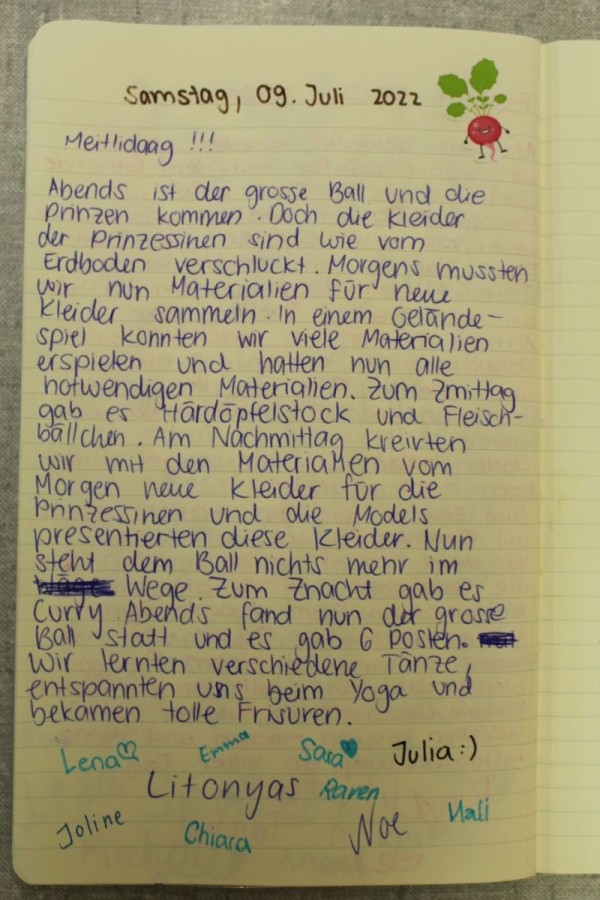 Samstag, 09. Juli 2022
Meitlidaag !!!
Abends ist der grosse Ball und die
Prinzen kommen. Doch die Kleider
der Prinzessinen sind wie vom
Erdboden verschluckt. Morgens mussten
wir nun Materialien für neue
Kleider sammeln. In einem Gelände-
spiel konnten wir viele Materialien
erspielen und hatten nun alle
notwendigen Materialien. Zum Zmittag
gab es Härdöpfelstock und Fleisch-
bällchen. Am Nachmittag kreirten
wir mit den Materialien vom
Morgen neue Kleider für die
Prinzessinen und die Models
presentierten diese Kleider. Nun
steht dem Ball nichts mehr im
Wege. Zum Znacht gab es
Curry. Abends fand nun der grosse
Ball statt und es gab 6 Posten.
Wir lernten verschiedene Tänze,
entspannten uns beim Yoga und
bekamen tolle Frisuren.
Lena Emma Sasa Julia :)
Litonyas Raren
Joline Chiara Noe Mali